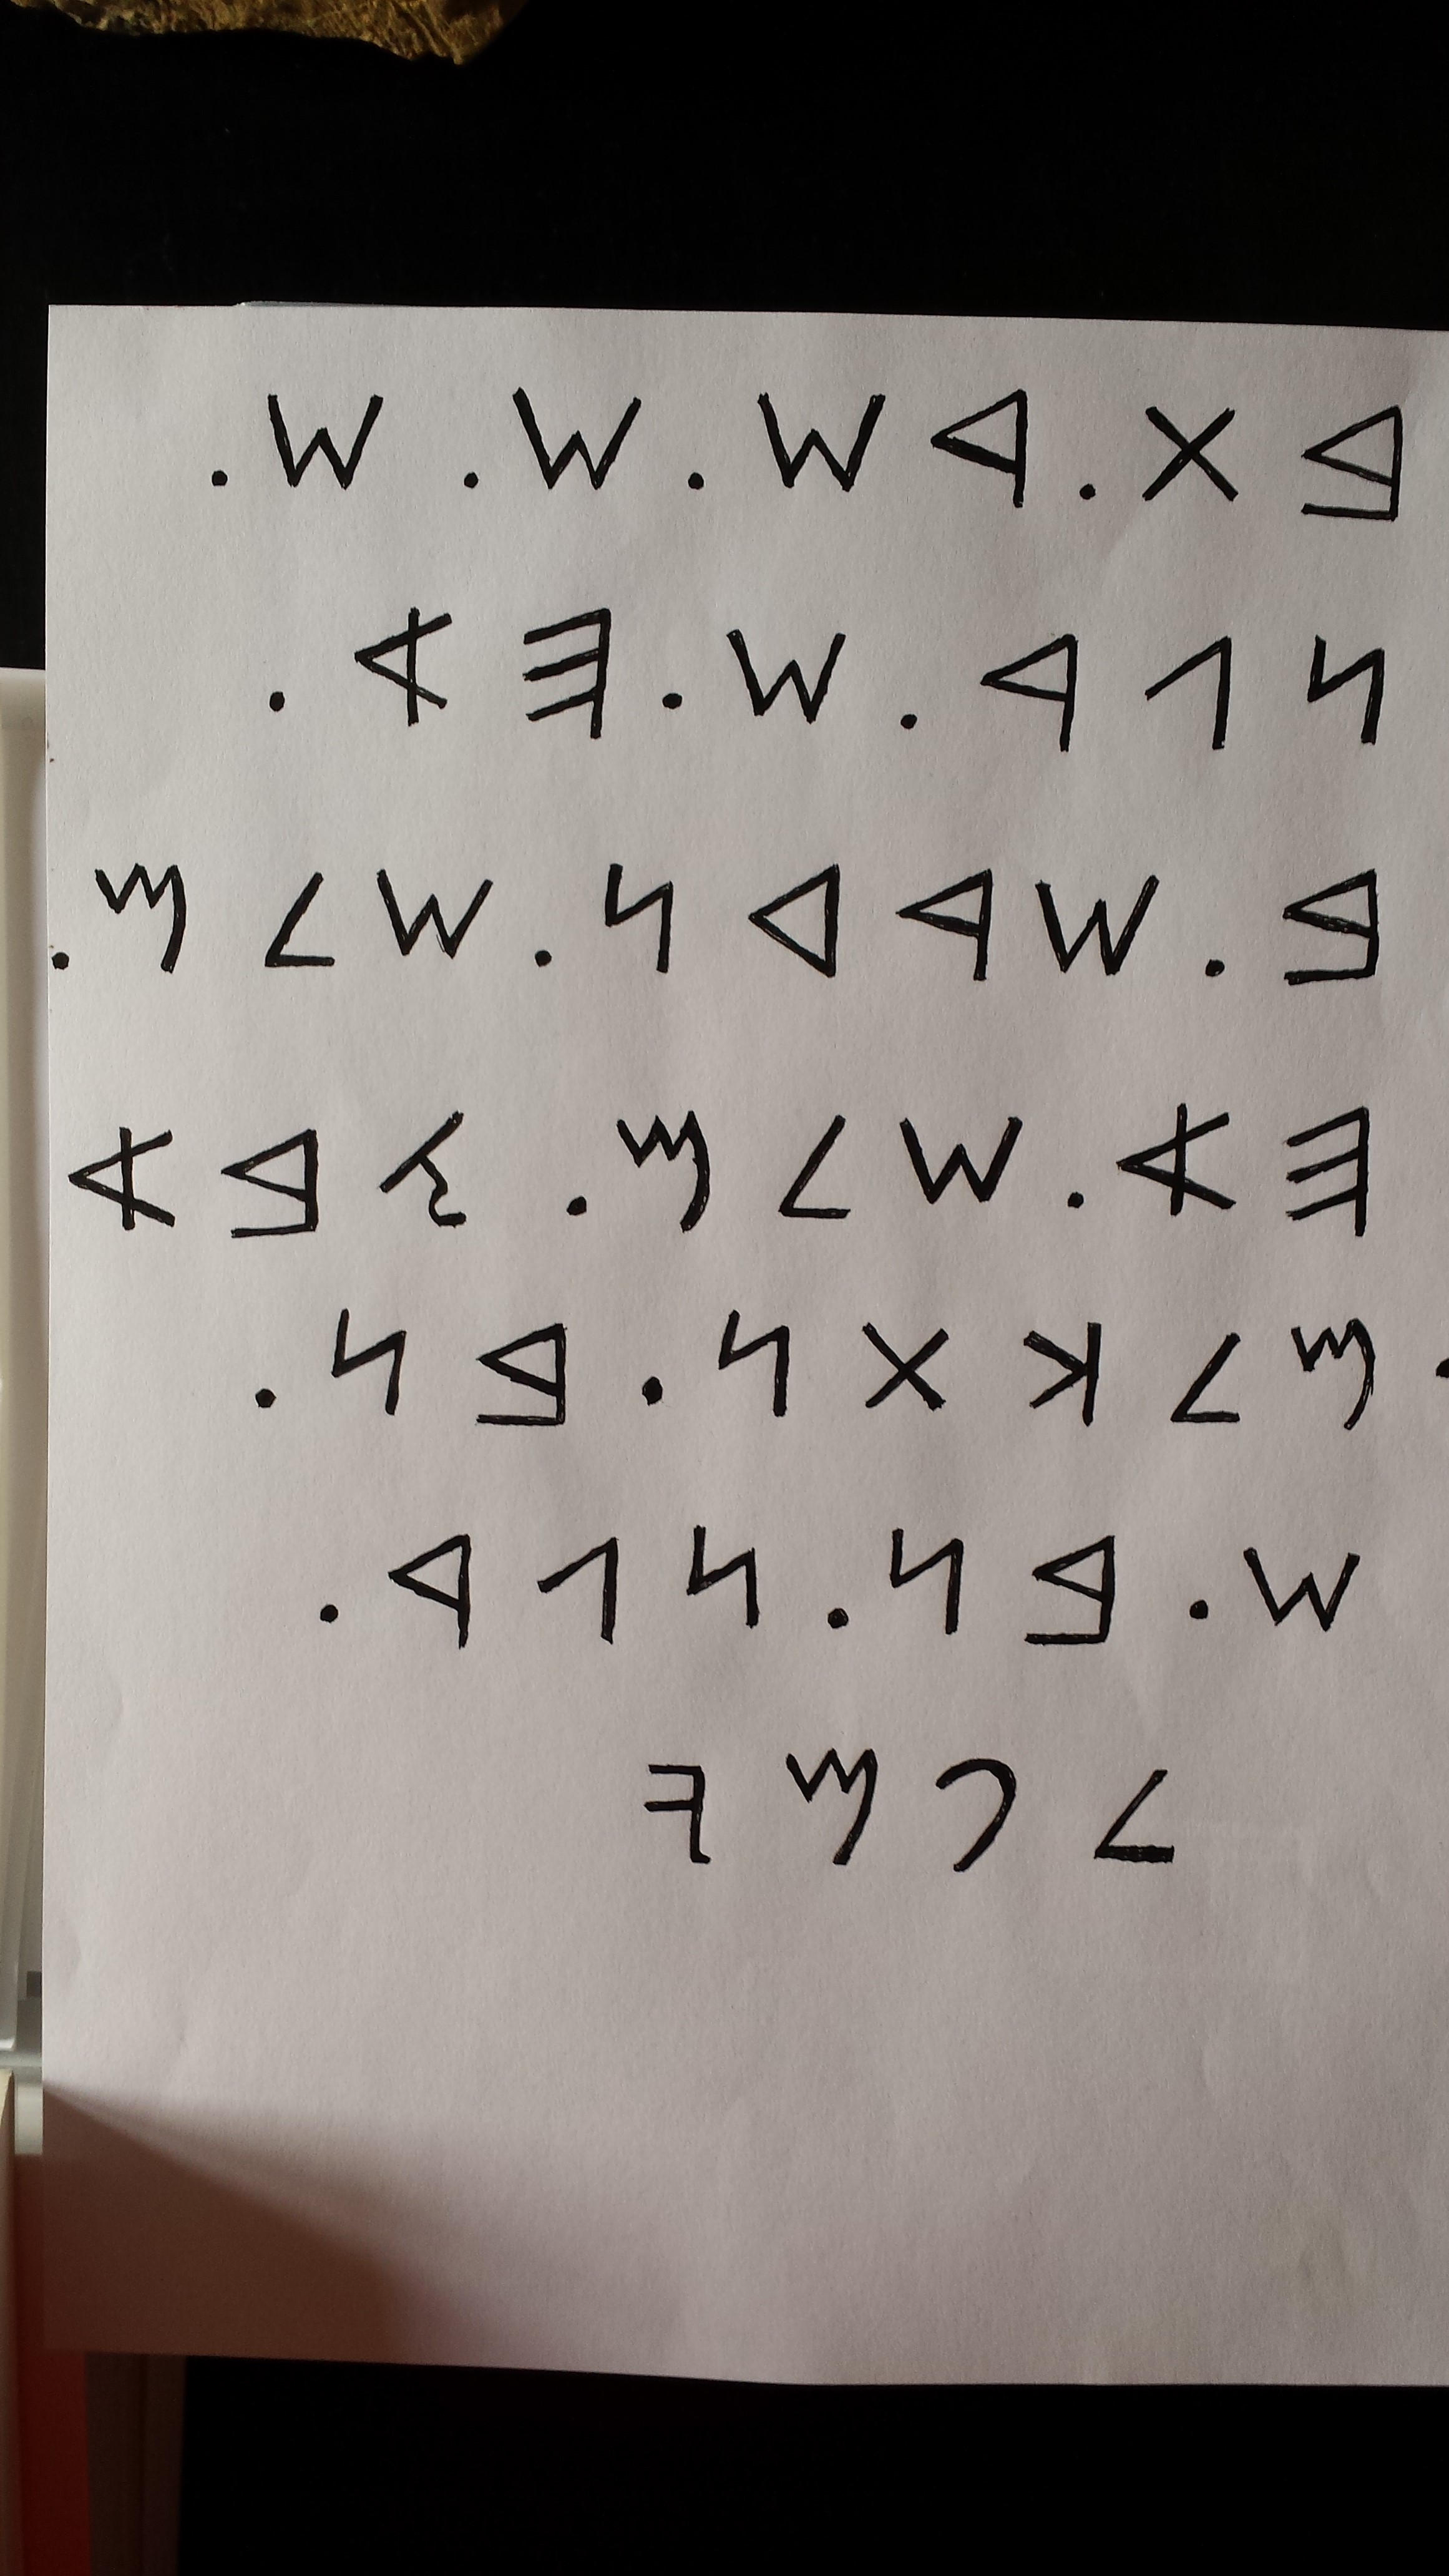 𐤁𐤕.𐤓𐤔.𐤔.𐤔.
𐤍𐤂𐤓.𐤔.𐤄𐤀.
𐤁.𐤔𐤓𐤃𐤍.𐤔𐤋𐤌.
𐤄𐤀.𐤔𐤋𐤌.𐤑𐤁𐤀
.𐤌𐤋𐤊𐤕𐤍.𐤁𐤍.
𐤔.𐤁𐤍.𐤍𐤂𐤓.
𐤋𐤐𐤌𐤉